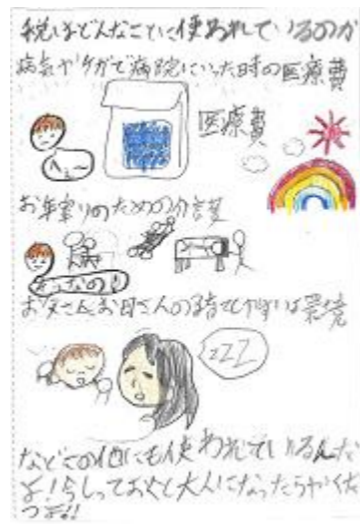 税はどんなことに使われているのか
病気やケガで病院にいった時の医療費
医療費
へぇー
お年寄りのための介護
そうなの!
お父さんお母さんの子育てしやすい環境
zZZ
などこの他にも使われているんだ
よ!らしっておくと大人になったらやくだ
つよ!!